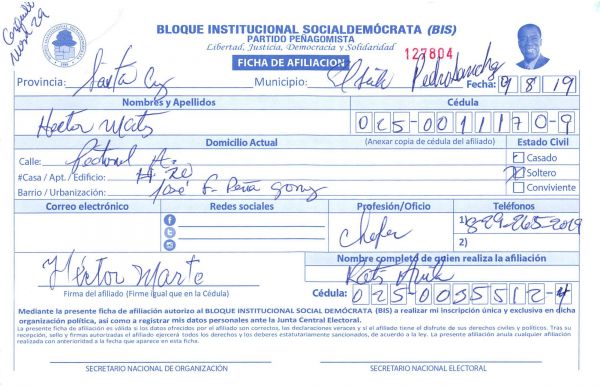 BLOQUE INSTITUCIONAL SOCIALDEMÓCRATA (BIS)
PARTIDO PEÑAGOMISTA
Libertad, Justicia, Democracia y Solidaridad
127804
FICHA DE AFILIACION
Provincia: Santa Cruz Municipio: Pedro Sanchez Fecha: 9 8 19
Nombres y Apellidos Cédula
Hector Mats 025-0011170-9
Domicilio Actual (Anexar copia de cédula del afiliado) Estado Civil
Calle: Peatonal
#Casa / Apt. / Edificio: # 20
Barrio / Urbanización: José F. Peña Gomez
Casado
Soltero
Conviviente
Correo electrónico Redes sociales Profesión/Oficio Teléfonos
Chofer
1) 829-265-2019
2)
Nombre completo de quien realiza la afiliación
Héctor Marte
Firma del afiliado (Firme igual que en la Cédula)
Cédula: 025-0035512-4
Mediante la presente ficha de afiliación autorizo al BLOQUE INSTITUCIONAL SOCIAL DEMÓCRATA (BIS) a realizar mi inscripción única y exclusiva en dicha
organización política, así como a registrar mis datos personales ante la Junta Central Electoral.
La presente ficha de afiliación es válida si los datos ofrecidos por el afiliado son correctos, las declaraciones veraces y si el afiliado tiene el disfrute de sus derechos civiles y políticos. Tras su
recepción, sello y firmas autorizadas el afiliado ejercerá todos los derechos y los deberes estatutariamente sancionados, de acuerdo a la ley. La presente afiliación anula cualquier afiliación
realizada con anterioridad a la fecha que aparece en esta ficha.
SECRETARIO NACIONAL DE ORGANIZACIÓN SECRETARIO NACIONAL ELECTORAL